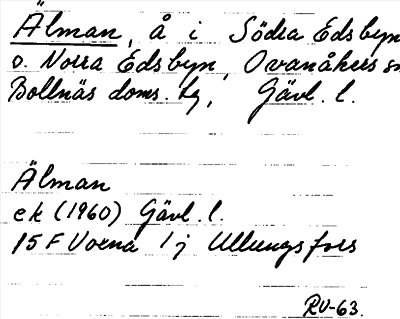 Älman, å i Södra Edsbyn
o. Norra Edsbyn, Ovanåkers sn
Bollnäs doms. tg, Gävl. l.
Älman
ek (1960) Gävl. l.
15 F Voxna 1 j Ullungsfors
RV-63.